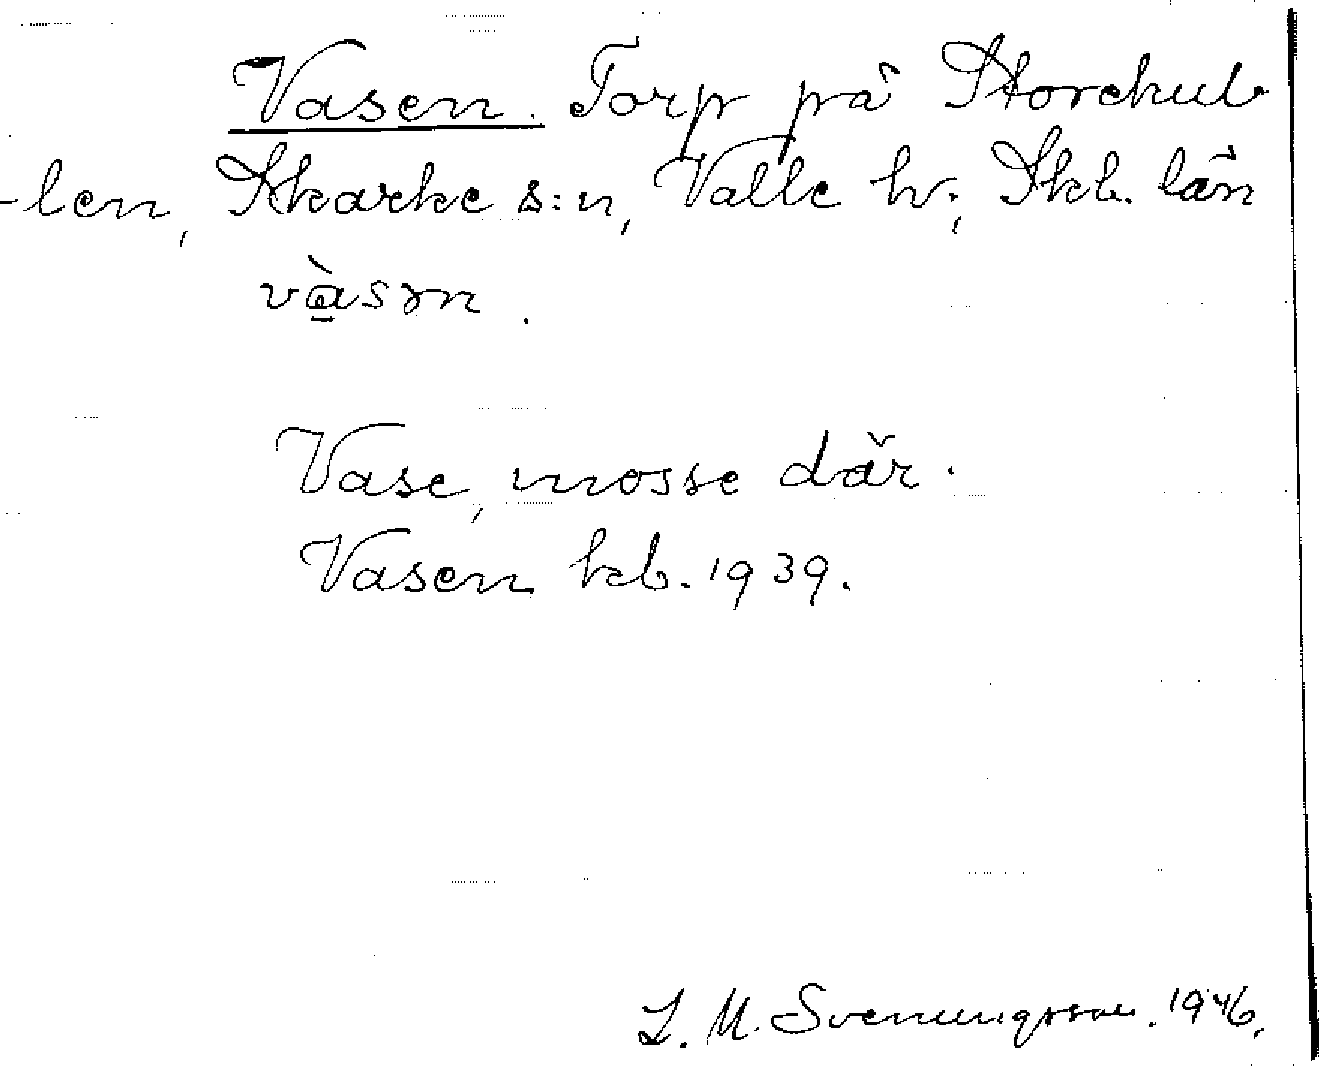 Vasen. Torp på Storekul-
-len, Skarke s:n, Valle hd; Skb. län
vàsɿn.
Vase, mosse där.
Vasen kb. 1939.
L. M. Svenungsson. 1946.